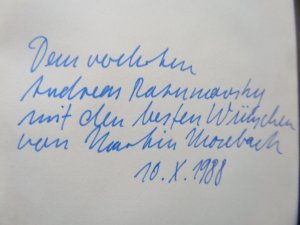 Dem verehrten
Andreas Razumovsky
mit den besten Wünschen
von Martin Mosebach
10. X. 1988